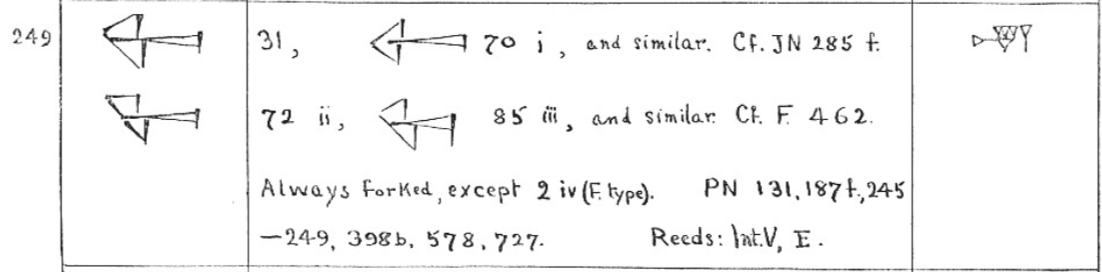 249 31, 70 i, and similar. Cf. JN 285 f.
72 ii, 85 iii, and similar. Cf. F. 462.
Always forked, except 2 iv (F. type). PN 131, 187 f., 245
—249, 398b, 578, 727. Reeds: Int.V, E.